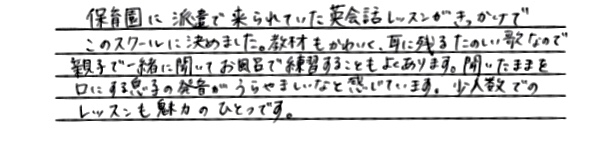 保育園に派遣で来られていた英会話レッスンがきっかけで
このスクールに決めました。教材もかわいく、耳に残るたのしい歌なので
親子で一緒に聞いてお風呂で練習することもよくあります。聞いたままを
口にする息子の発音がうらやましいなと感じています。少人数での
レッスンも魅力のひとつです。